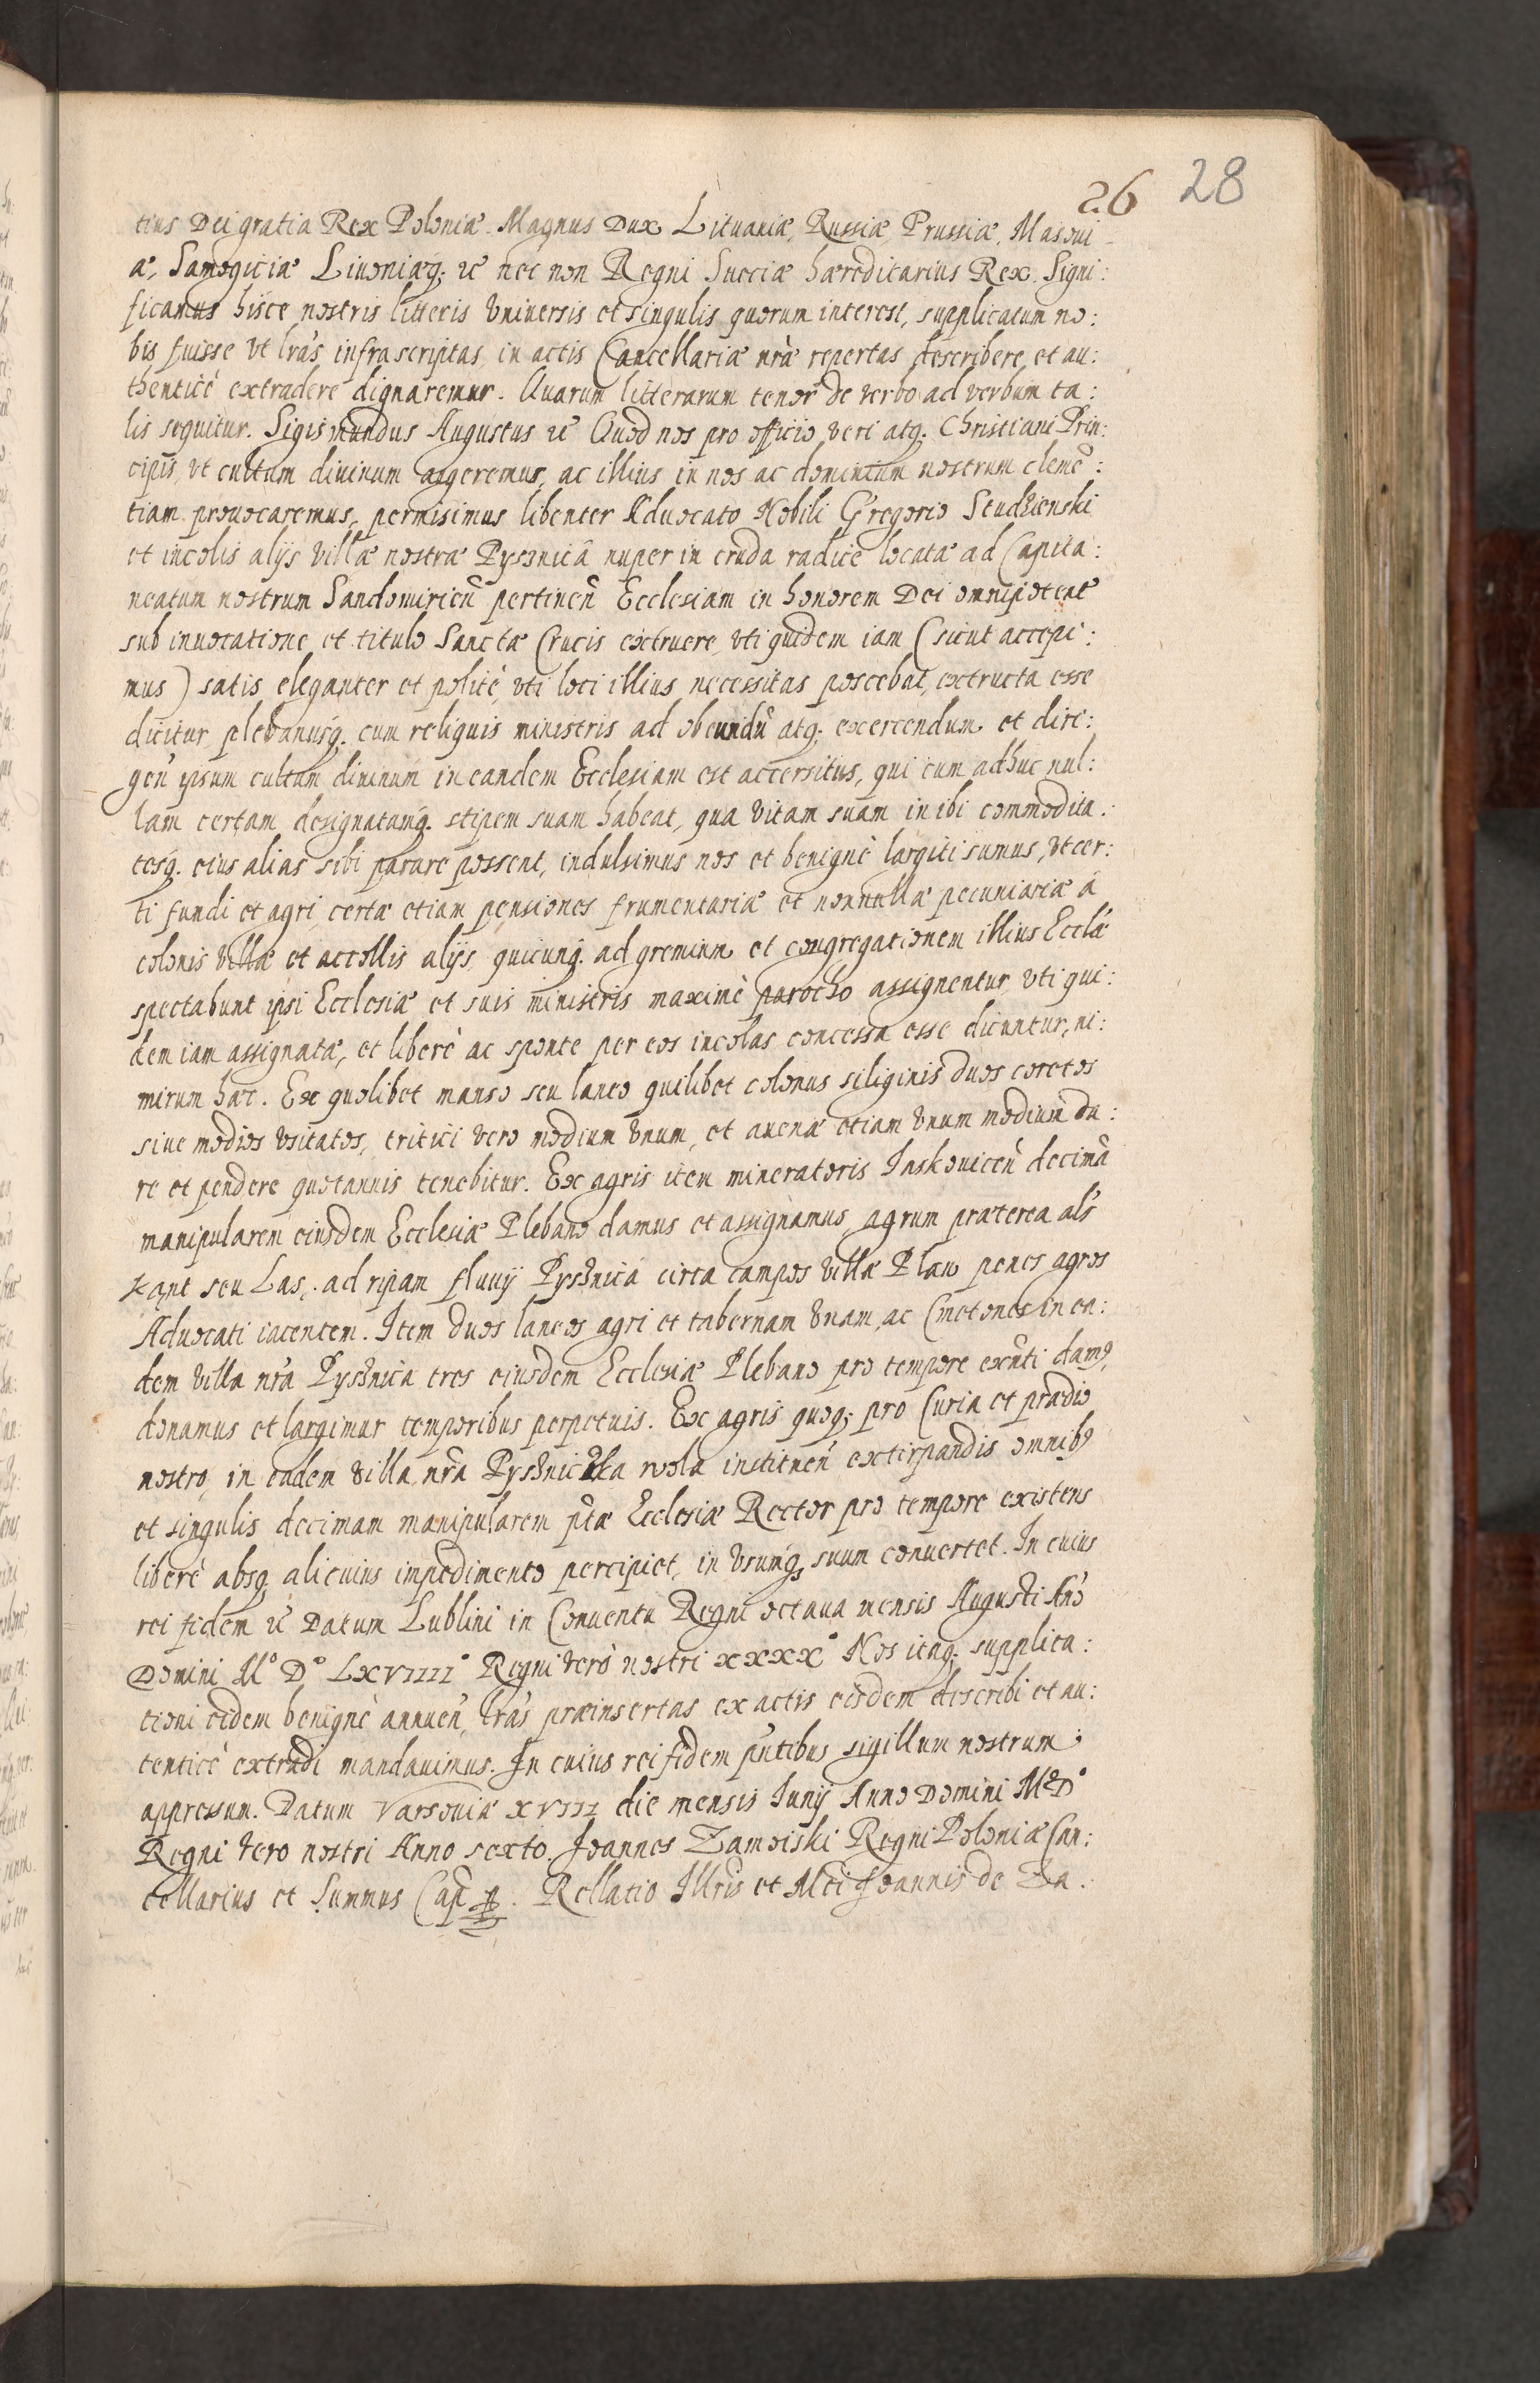 26 28
tius Dei gratia Rex Poloniæ Magnus Dux Lituaniæ, Russiæ, Prussiæ, Masoui
æ, Samogitiæ Liuoniæq; &c nec non Regni Sueciæ hæreditarius Rex. Signi:
ficamus hisce nostris litteris Vniuersis et singulis quorum interest, supplicatum no:
bis fuisse vt lras infrascriptas, in actis Cancellariæ nræ repertas describere, et au:
thenticè extradere dignaremur. Quarum litterarum tenor de verbo ad verbum ta:
lis sequitur. Sigismundus Augustus &c Quod nos pro officio veri atq. Christiani Prin:
cipis, vt cultum diuinum augeremus, ac illius in nos ac dominium nostrum clemẽ:
tiam prouocaremus, permisimus libenter Aduocato Nobili Gregorio Studzienski
et incolis alijs villæ nostræ Pysznicâ nuper in cruda radice locatæ ad Capita:
neatum nostrum Sandomirien̄ pertinen̄ Ecclesiam in honorem Dei omnipotent̃
sub inuocatione et titulo Sanctæ Crucis extruere, vti quidem iam (sicut accepi:
mus) satis eleganter et politè, vti loci illius necessitas poscebat, extructa esse
dicitur, plebanusq. cum reliquis ministris ad obeundũ atq. exercendum et diri:
gen̄ ipsum cultum diuinum in eandem Ecclesiam est accersitus, qui cum adhuc nul:
lam certam designatamq. stipem suam habeat, qua vitam suam in ibi commodita:
tesq. eius alias sibi parare possent, indulsimus nos et benignè largiti sumus, vt cer:
ti fundi et agri, certæ etiam pensiones frumentariæ et nonnullæ pecuniariæ à
colonis villæ et accollis alijs, quicunq. ad gremium et congregationem illius Ecclæ
spectabunt ipsi Ecclesiæ et suis ministris maximè parocho assignentur, vti qui:
dem iam assignatæ, et liberè ac sponte per eos incolas concessa esse dicuntur, ni:
mirum hæc. Ex quolibet manso seu laneo quilibet colonus siliginis duos coretos
siue modios vsitatos, tritici vero modium vnum, et auenæ etiam vnum modium da:
re et pendere quotannis tenebitur. Ex agris item mineratoris Jaskouicen̄ decimã
manipularem eiusdem Ecclesiæ Plebano damus et assignamus, agrum præterea als
kąpt seu Las, ad ripam fluuij Pysznica circa campos villæ Plaw penes agros
Aduocati iacentem. Item duos laneos agri et tabernam vnam, ac Cmetones in ea:
dem villa nra Pysznica tres eiusdem Ecclesiæ Plebano pro tempore exñti damꝰ,
donamus et largimur temporibus perpetuis. Ex agris quoq; pro Curia et prædio
nostro, in eadem villa nra Pysznicka wola instituen̄ extirpandis omnibꝰ
et singulis decimam manipularem ptæ Ecclesiæ Rector pro tempore existens
liberè absq. alicuius impedimento percipiet, in vsumq; suum conuertet. In cuius
rei fidem &c Datum Lublini in Conuentu Regni octaua mensis Augusti Año
Domini M° D° LXVIIII° Regni verò nostri XXXX° Nos itaq. supplica:
tioni eidem benignè annuen̄, lras præinsertas ex actis eisdem describi et au:
tenticè extradi mandauimus. In cuius rei fidem pñtibus sigillum nostrum
appressum. Datum Varsouiæ XVIII die mensis Iunij Anno Domini M°D°
Regni vero nostri Anno sexto. Joannes Zamoiski Regni Poloniæ Can:
cellarius et Summus Cap̃. Rellatio Illris et Mci Joannis de Za.